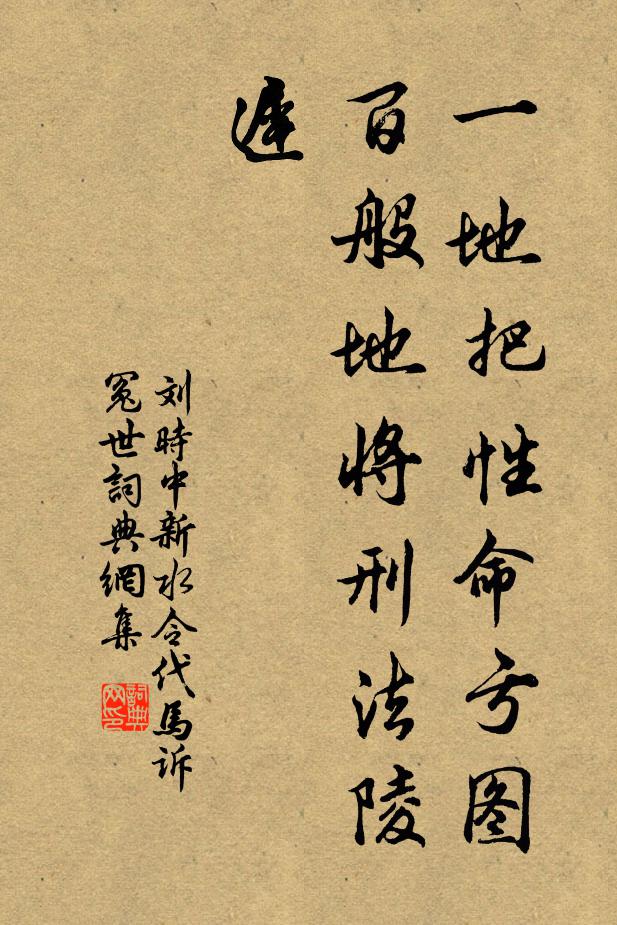 一地把性命亏图
百般地将刑法陵
遲
刘時中新水令代馬诉
冤世詞典網集
詞典网印